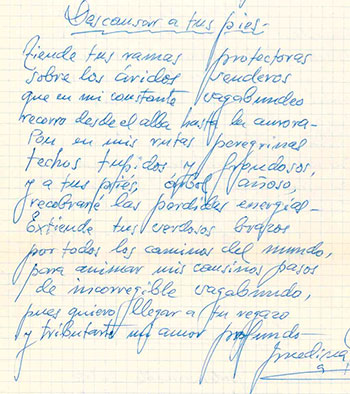 Descansar a tus pies-
Tiende tus ramas protectoras
sobre los áridos senderos
que en mi constante vagabundeo
recorro desde el alba hasta la aurora-
Pon en mis rutas peregrinas
techos tupidos y frondosos,
y a tus pies, árbol añoso,
recobraré las perdidas energías-
Extiende tus verdosos brazos
por todos los caminos del mundo,
para animar mis cansinos pasos
de incorregible vagabundo,
pues quiero llegar a tu regazo
y tributarte un amor profundo-